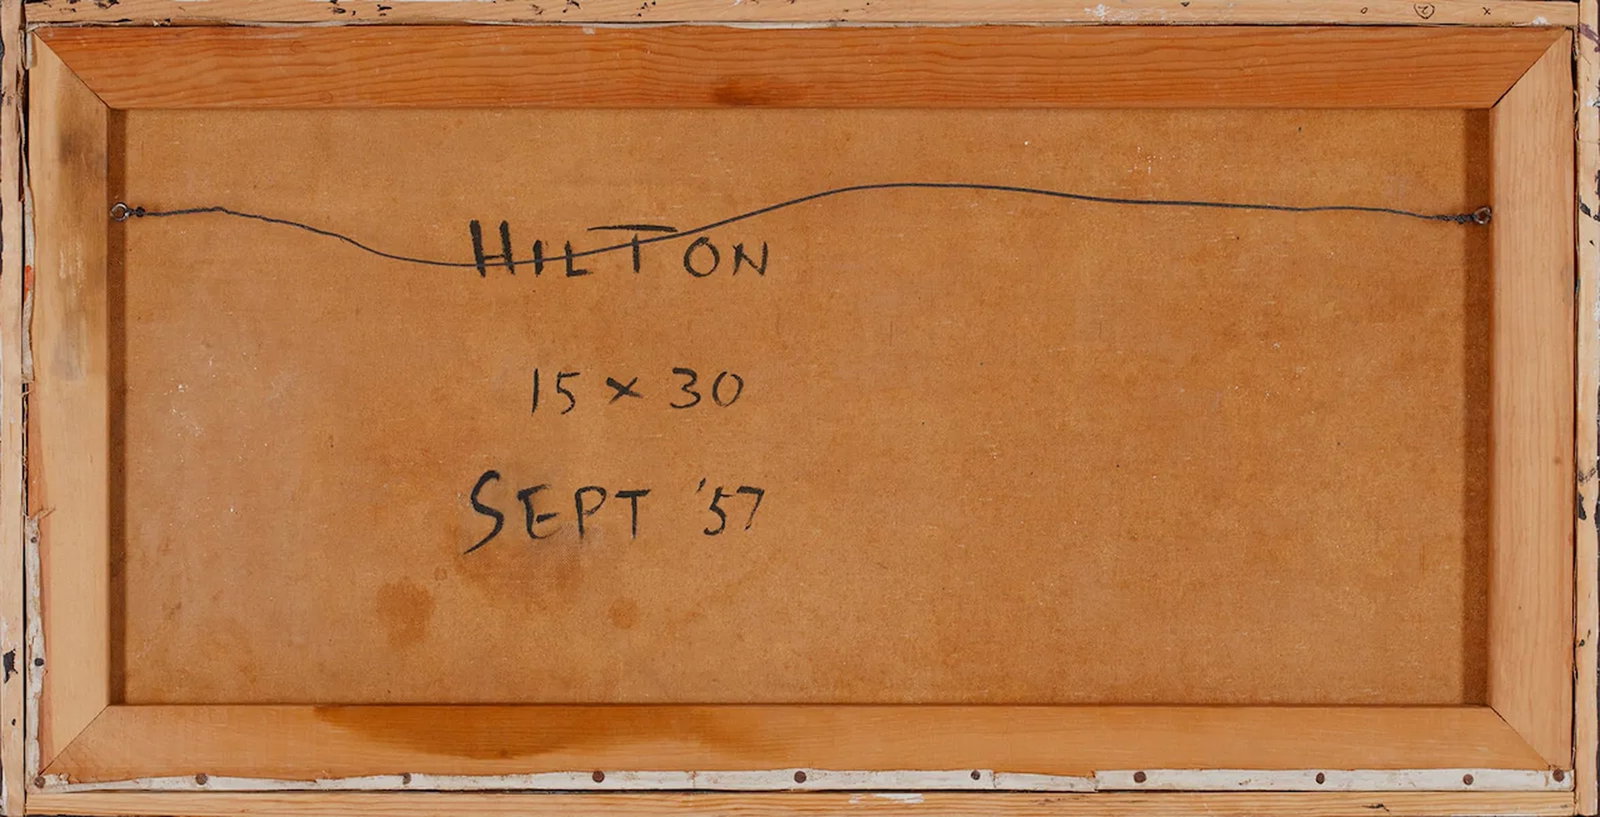 HILTON
15 × 30
SEPT '57